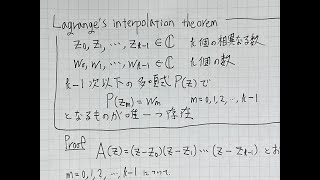 Lagrange's interpolation theorem
z₀, z₁, ⋯, z_{k-1} ∈ ℂ k個の相異なる数
w₀, w₁, ⋯, w_{k-1} ∈ ℂ k個の数
k-1次以下の多項式 P(z) で
P(z_m) = w_m m=0,1,2,⋯,k-1
となるものが唯一つ存在
Proof A(z)=(z-z₀)(z-z₁)⋯(z-z_{k-1}) とお
m=0,1,2,⋯,k-1 について